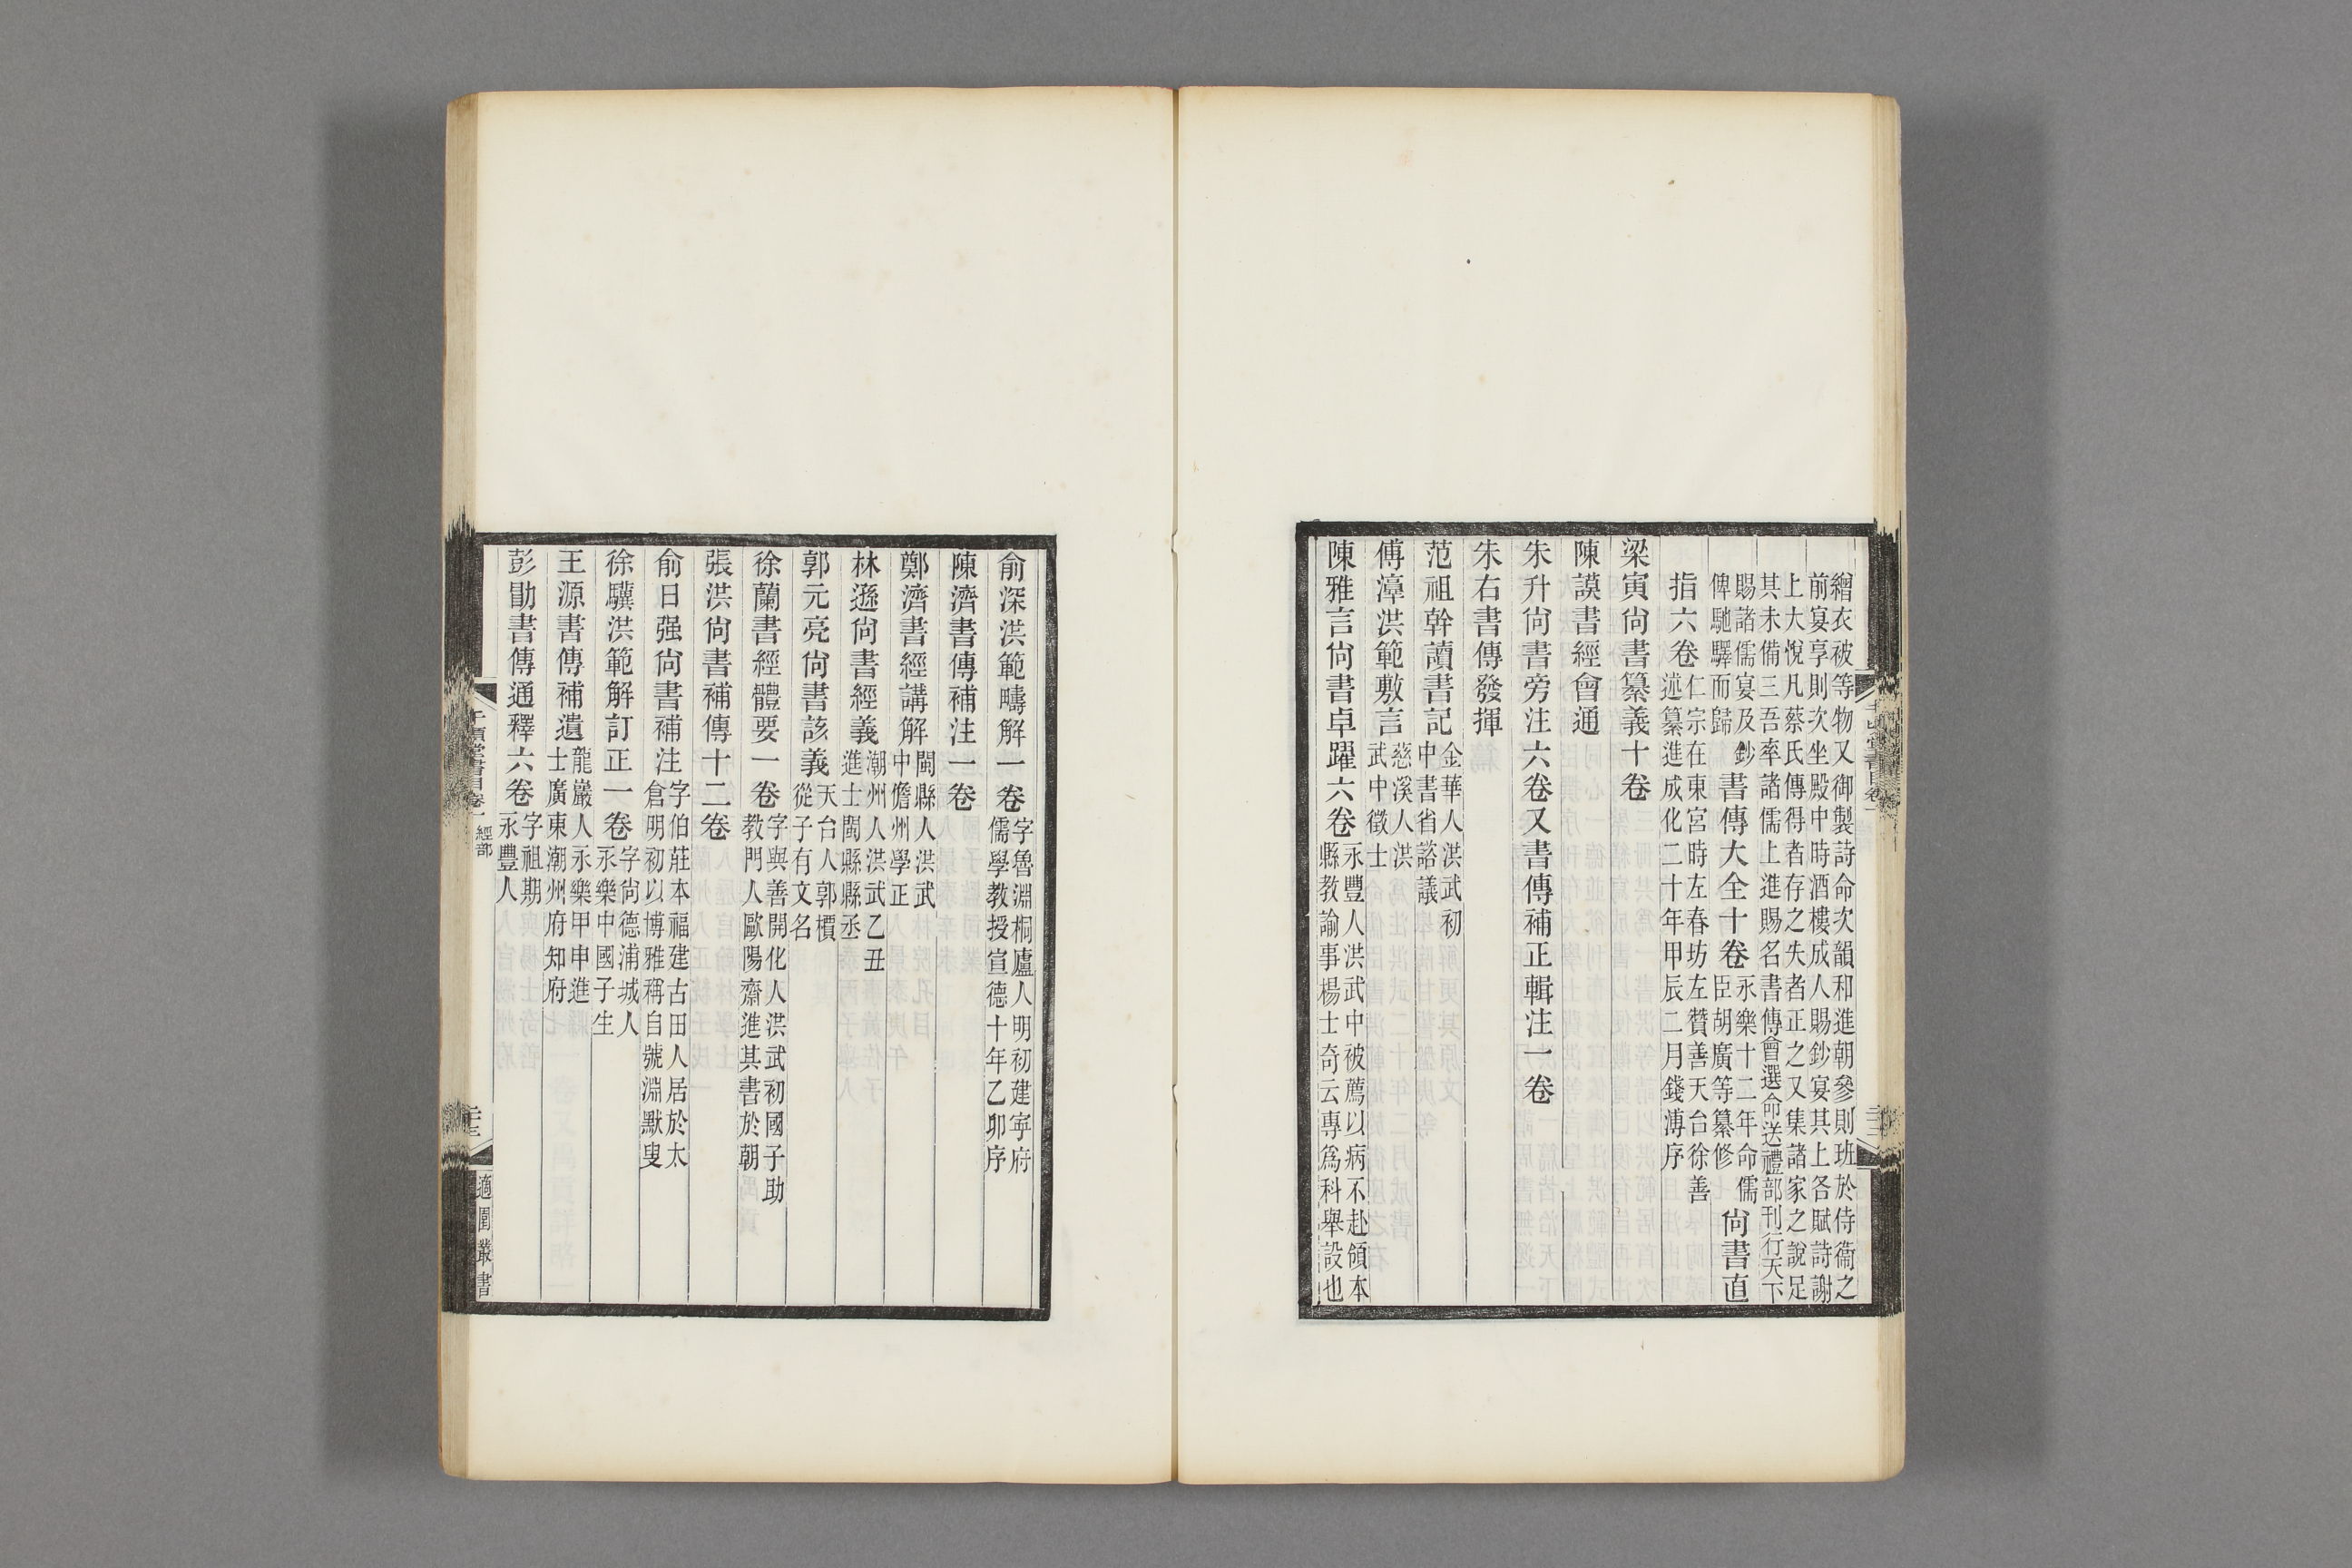 繒衣被等物又御製詩命次韻和進朝參則班於侍衞之
前宴享則次坐殿中時酒樓成人賜鈔宴其上各賦詩謝
上大悅凡蔡氏傳得者存之失者正之又集諸家之說足
其未備三吾率諸儒上進賜名書傳會選命送禮部刊行天下
賜諸儒宴及鈔
俾馳驛而歸
書傳大全十卷
永樂十二年命儒
臣胡廣等纂修
尙書直
指六卷
仁宗在東宮時左春坊左贊善天台徐善
述纂進成化二十年甲辰二月錢溥序
梁寅尙書纂義十卷
陳謨書經會通
朱升尙書旁注六卷又書傳補正輯注一卷
朱右書傳發揮
范祖幹讀書記
金華人洪武初
中書省諮議
傅漳洪範敷言
慈溪人洪
武中徵士
陳雅言尙書卓躍六卷
永豐人洪武中被薦以病不赴領本
縣教諭事楊士奇云專爲科舉設也
俞深洪範疇解一卷
字魯淵桐廬人明初建寧府
儒學教授宣德十年乙卯序
陳濟書傳補注一卷
鄭濟書經講解
閩縣人洪武
中儋州學正
林遜尙書經義
潮州人洪武乙丑
進士閩縣縣丞
郭元亮尙書該義
天台人郭檟
從子有文名
徐蘭書經體要一卷
字與善開化人洪武初國子助
教門人歐陽齋進其書於朝
張洪尙書補傳十二卷
俞日强尙書補注
字伯莊本福建古田人居於太
倉明初以博雅稱自號淵默叟
徐驥洪範解訂正一卷
字尙德浦城人
永樂中國子生
王源書傳補遺
龍巖人永樂甲申進
士廣東潮州府知府
彭勖書傳通釋六卷
字祖期
永豐人
千頃堂書目卷一
經部
二十三
適園叢書